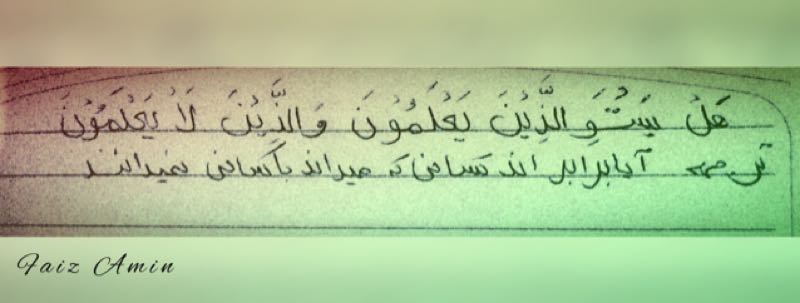 هَلْ يَسْتَوِ الَّذِيْنَ يَعْلَمُوْنَ وَالَّذِيْنَ لَا يَعْلَمُوْنَ
ترجمه آیا برابر اند کسانی که میداند با کسانی نمیدانند
Faiz Amin